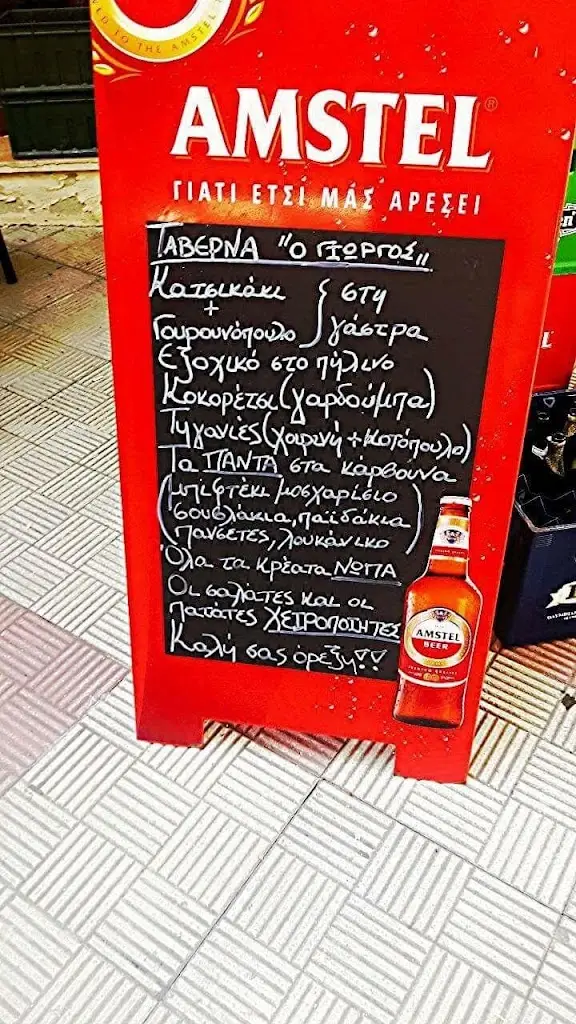 D TO THE AMSTEL
AMSTEL®
ΓΙΑΤΙ ΕΤΣΙ ΜΑΣ ΑΡΕΣΕΙ
ΤΑΒΕΡΝΑ "Ο ΓΙΩΡΓΟΣ„
Κατσικάκι { στη
+
Γουρουνόπουλο γάστρα
Εξοχικό στο πήλινο
Κοκορέτσι (γαρδούμπα)
Τηγανιές (χοιρινή + κοτόπουλο)
Τα ΠΑΝΤΑ στα κάρβουνα
(μπιφτέκι μοσχαρίσιο
σουβλάκια, παϊδάκια
πανσέτες, λουκάνικο)
Όλα τα κρέατα ΝΩΠΑ
Οι σαλάτες και οι
πατάτες ΧΕΙΡΟΠΟΙΗΤΕΣ
Καλή σας όρεξη!!
AMSTEL
BEER